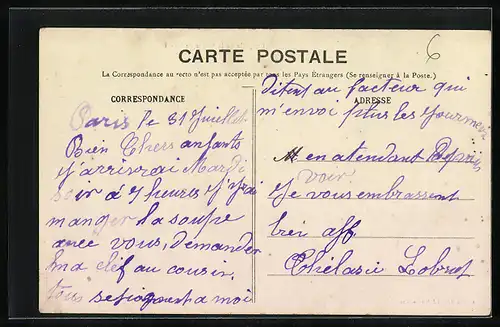 6
CARTE POSTALE
La Correspondance au recto n'est pas acceptée par tous les Pays Étrangers (Se renseigner à la Poste.)
CORRESPONDANCE
Paris le 31 Juillet
Bien Chers enfants
J'arriverai Mardi
soir à 7 heures J'irai
manger la soupe
avec vous, demander
ma clef au cousin.
tous
a moi
ADRESSE
ditent au facteur qui
m'envoi plus les
M en atendant
voir
Je vous embrassent
bien aff